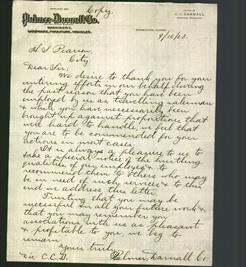 Copy.
Palmer-Darnall Co.
HARDWARE, FURNITURE, VEHICLES.
C. C. DARNALL
9/10/03.
H. S. Pearson,
City
Dear Sir:
We desire to thank you for your
untiring efforts in our behalf during
the past season that you have been
employed by us as travelling salesman
& while you have necessarily been
brought up against propositions that
were hard to handle, we feel that
you are to be commended for your
actions in most cases.
It is always a pleasure to us to
take a special notice of the hustling
qualities of our employes & to
recommend them to others who may
be in need of such services & to this
end we address this letter.
Trusting that you may be
successful in all your future work &
that you may remember your
associations with us as pleasant
& profitable to you, we beg to
remain
Yours truly,
Dic C. C. D. Palmer, Darnall Co.